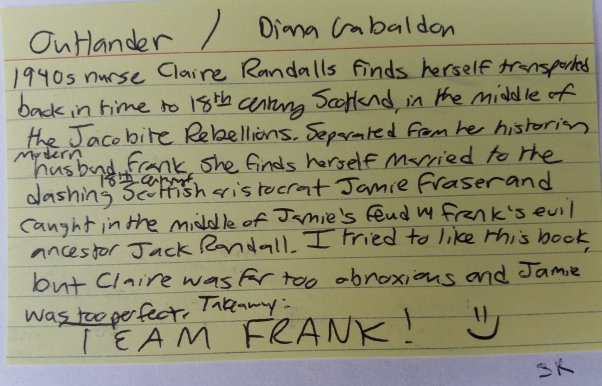 Outlander / Diana Gabaldon
1940s nurse Claire Randalls finds herself transported
back in time to 18th century Scotland, in the middle of
the Jacobite Rebellions. Separated from her historian
modern
husband Frank she finds herself married to the
18th century
dashing Scottish aristocrat Jamie Fraser and
caught in the middle of Jamie's feud w/ Frank's evil
ancestor Jack Randall. I tried to like this book,
but Claire was far too obnoxious and Jamie
was too perfect. Takeaway:
TEAM FRANK! :)
SK